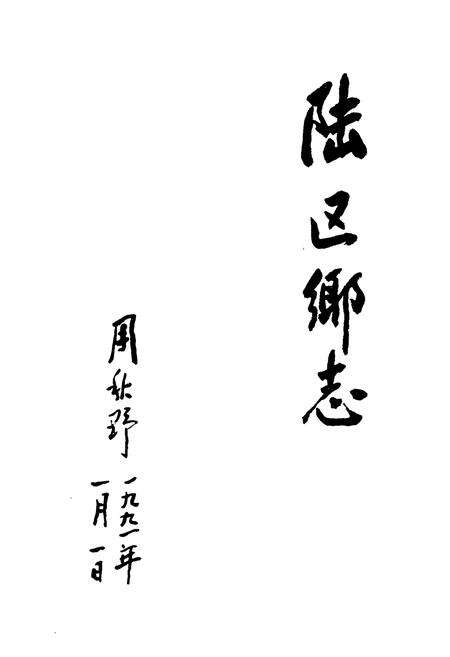 陆区鄉志
周秋野
一九九一年
一月一日